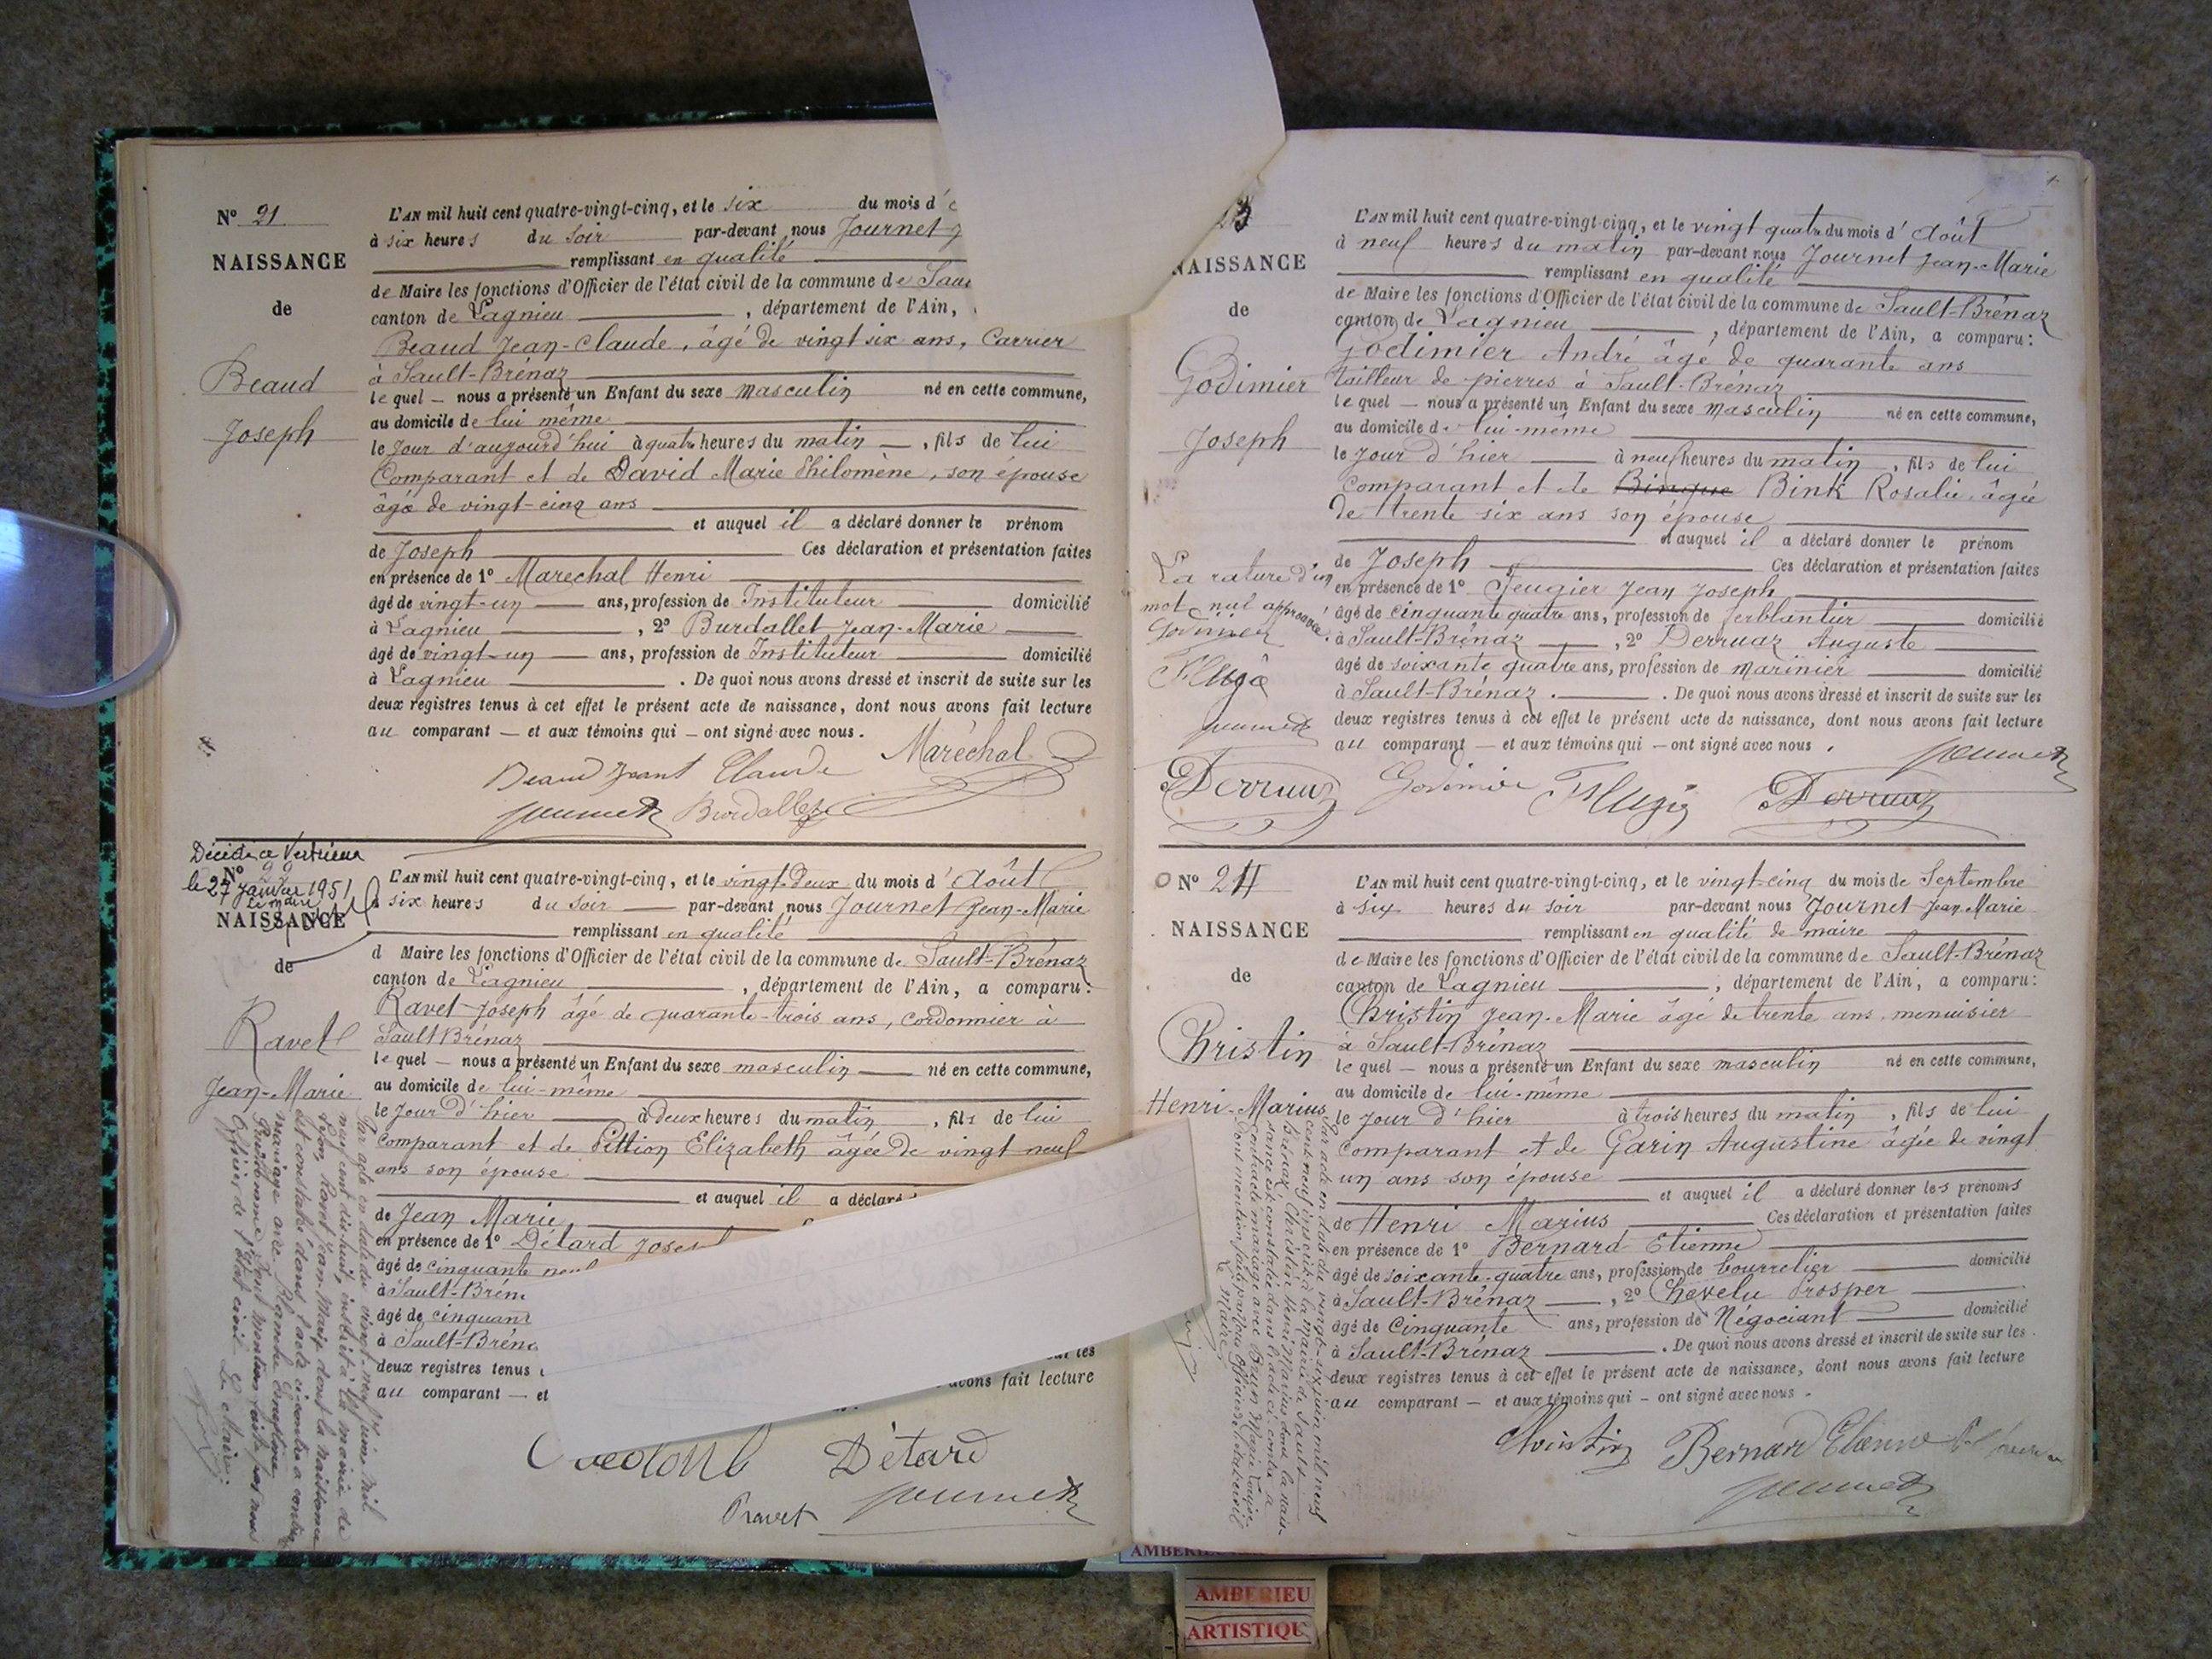 N° 21
NAISSANCE
de
Beaud
Joseph
L'AN mil huit cent quatre-vingt-cinq, et le six du mois d'
à six heures du soir par-devant nous Journet
remplissant en qualité
de Maire les fonctions d'Officier de l'état civil de la commune de Sau
canton de Lagnieu, département de l'Ain,
Beaud Jean-Claude, âgé de vingt six ans, Carrier
à Sault-Brénaz
le quel — nous a présenté un Enfant du sexe masculin né en cette commune,
au domicile de lui même
le jour d'aujourd'hui à quatre heures du matin —, fils de lui
Comparant et de David Marie Philomène, son épouse
âgé de vingt-cinq ans
et auquel il a déclaré donner le prénom
de Joseph Ces déclaration et présentation faites
en présence de 1° Marechal Henri
âgé de vingt-un ans, profession de Instituteur domicilié
à Lagnieu, 2° Burdallet Jean-Marie
âgé de vingt-un ans, profession de Instituteur domicilié
à Lagnieu. De quoi nous avons dressé et inscrit de suite sur les
deux registres tenus à cet effet le présent acte de naissance, dont nous avons fait lecture
au comparant — et aux témoins qui — ont signé avec nous.
Beaud Jeant Claude Maréchal
Journet Burdallet
Décédé à Vertrieux
N° 22
le 27 janvier 1951
Le maire
NAISSANCE
de
Ravet
Jean-Marie
L'AN mil huit cent quatre-vingt-cinq, et le vingt-deux du mois d'Août
à six heures du soir par-devant nous Journet Jean-Marie
remplissant en qualité
d Maire les fonctions d'Officier de l'état civil de la commune de Sault-Brénaz
canton de Lagnieu, département de l'Ain, a comparu:
Ravet Joseph âgé de quarante-trois ans, cordonnier à
Sault Brénaz
le quel — nous a présenté un Enfant du sexe masculin né en cette commune,
au domicile de lui-même
le jour d'hier à deux heures du matin, fils de lui
comparant et de Pittion Elizabeth âgée de vingt neuf
ans son épouse
et auquel il a déclaré
de Jean Marie
en présence de 1° Détard Joseph
âgé de cinquante neuf
à Sault-Bréna
âgé de cinquant
à Sault-Bréna
deux registres tenus
sur les
au comparant — et
avons fait lecture
Par acte en date du vingt-neuf juin mil
neuf cent dix-huit, inscrit à la mairie de
Lyon, Ravet Jean-Marie dont la naissance
est constatée dans l'acte ci-contre a contracté
mariage avec
Prudhomme dont mention faite par nous
Officier de l'Etat civil. Le Maire:
Détard
Ravet Journet
23
NAISSANCE
de
Godimier
Joseph
L'AN mil huit cent quatre-vingt-cinq, et le vingt quatre du mois d'Août
à neuf heures du matin par-devant nous Journet Jean-Marie
remplissant en qualité
de Maire les fonctions d'Officier de l'état civil de la commune de Sault-Brénaz
canton de Lagnieu, département de l'Ain, a comparu:
Godimier André âgé de quarante ans
tailleur de pierres à Sault-Brénaz
le quel — nous a présenté un Enfant du sexe masculin né en cette commune,
au domicile de lui-même
le jour d'hier à neuf heures du matin, fils de lui
comparant et de Binque Bink Rosalie âgée
de trente six ans son épouse
et auquel il a déclaré donner le prénom
de Joseph Ces déclaration et présentation faites
en présence de 1° Feugier Jean Joseph
âgé de cinquante quatre ans, profession de ferblantier domicilié
à Sault-Brénaz, 2° Derruaz Auguste
âgé de soixante quatre ans, profession de marinier domicilié
à Sault-Brénaz. De quoi nous avons dressé et inscrit de suite sur les
deux registres tenus à cet effet le présent acte de naissance, dont nous avons fait lecture
au comparant — et aux témoins qui — ont signé avec nous.
La rature d'un
mot nul approuvée
Godimier
Journet
Journet
Derruaz Godimier Derruaz
N° 24
NAISSANCE
de
Christin
Henri-Marius
L'AN mil huit cent quatre-vingt-cinq, et le vingt-cinq du mois de Septembre
à six heures du soir par-devant nous Journet Jean-Marie
remplissant en qualité de maire
de Maire les fonctions d'Officier de l'état civil de la commune de Sault-Brénaz
canton de Lagnieu, département de l'Ain, a comparu:
Christin Jean-Marie âgé de trente ans, menuisier
à Sault-Brénaz
le quel — nous a présenté un Enfant du sexe masculin né en cette commune,
au domicile de lui-même
le jour d'hier à trois heures du matin, fils de lui
comparant et de Garin Augustine âgée de vingt
un ans son épouse
et auquel il a déclaré donner les prénoms
de Henri Marius Ces déclaration et présentation faites
en présence de 1° Bernard Etienne
âgé de soixante-quatre ans, profession de bourrelier domicilié
à Sault-Brénaz, 2° Chevelu Prosper
âgé de Cinquante ans, profession de Négociant domicilié
à Sault-Brénaz. De quoi nous avons dressé et inscrit de suite sur les
deux registres tenus à cet effet le présent acte de naissance, dont nous avons fait lecture
au comparant — et aux témoins qui — ont signé avec nous.
Par acte en date du vingt-six juin mil neuf
cent neuf inscrit à la mairie de Sault-
Brénaz, Christin Henri Marius dont la nais-
sance est constatée dans l'acte ci-contre a
contracté mariage avec Brun Marie Louise
dont mention faite par nous Officier de l'état civil
Le Maire,
Christin Bernard Etienne
Journet
AMBERIEU
AMBERIEU
ARTISTIQU